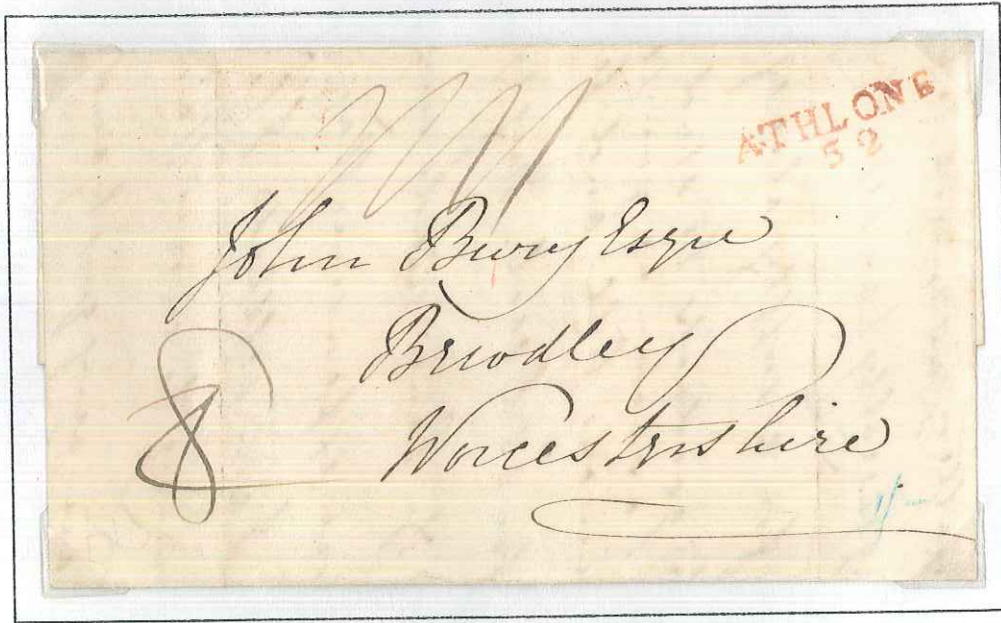 ATHLONE
52
John Bury Esqre
Brindley
Worcestershire
8
1/-